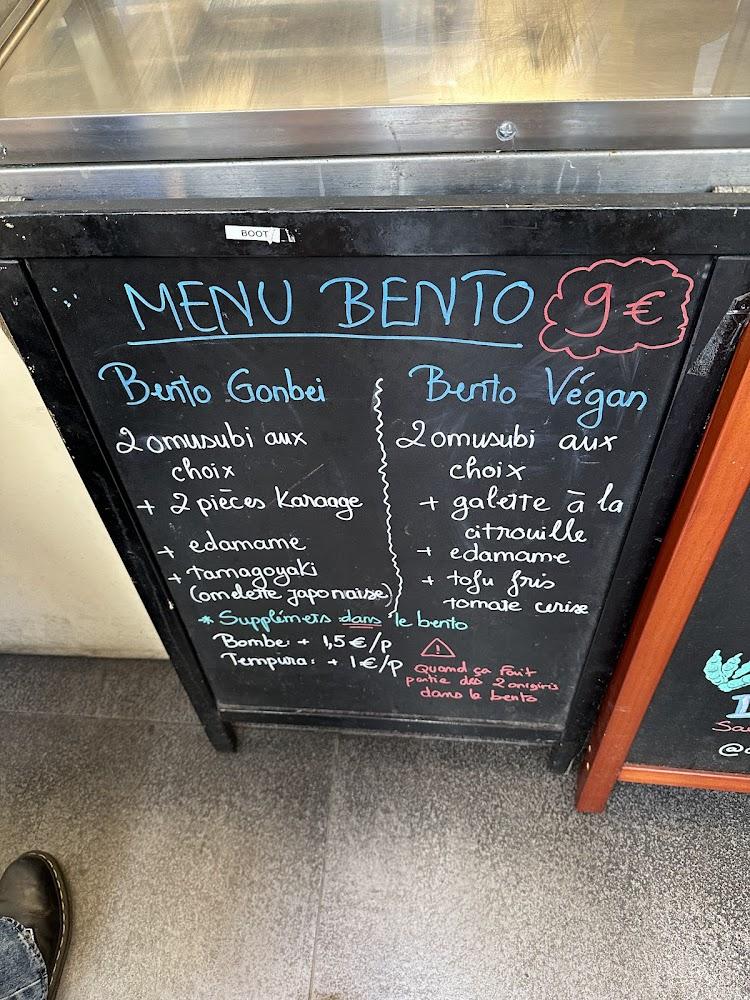 BOOT
MENU BENTO
9€
Bento Gonbei
2 omusubi aux
choix
+ 2 pièces Karaage
+ edamame
+ tamagoyaki
(omelette japonaise)
Bento Végan
2 omusubi aux
choix
+ galette à la
citrouille
+ edamame
+ tofu fris
tomate cerise
* Supplémets dans le bento
Bombe: + 1,5€/p
Tempura: + 1€/p
Quand ça fait
partie des 2 onigiris
dans le bento